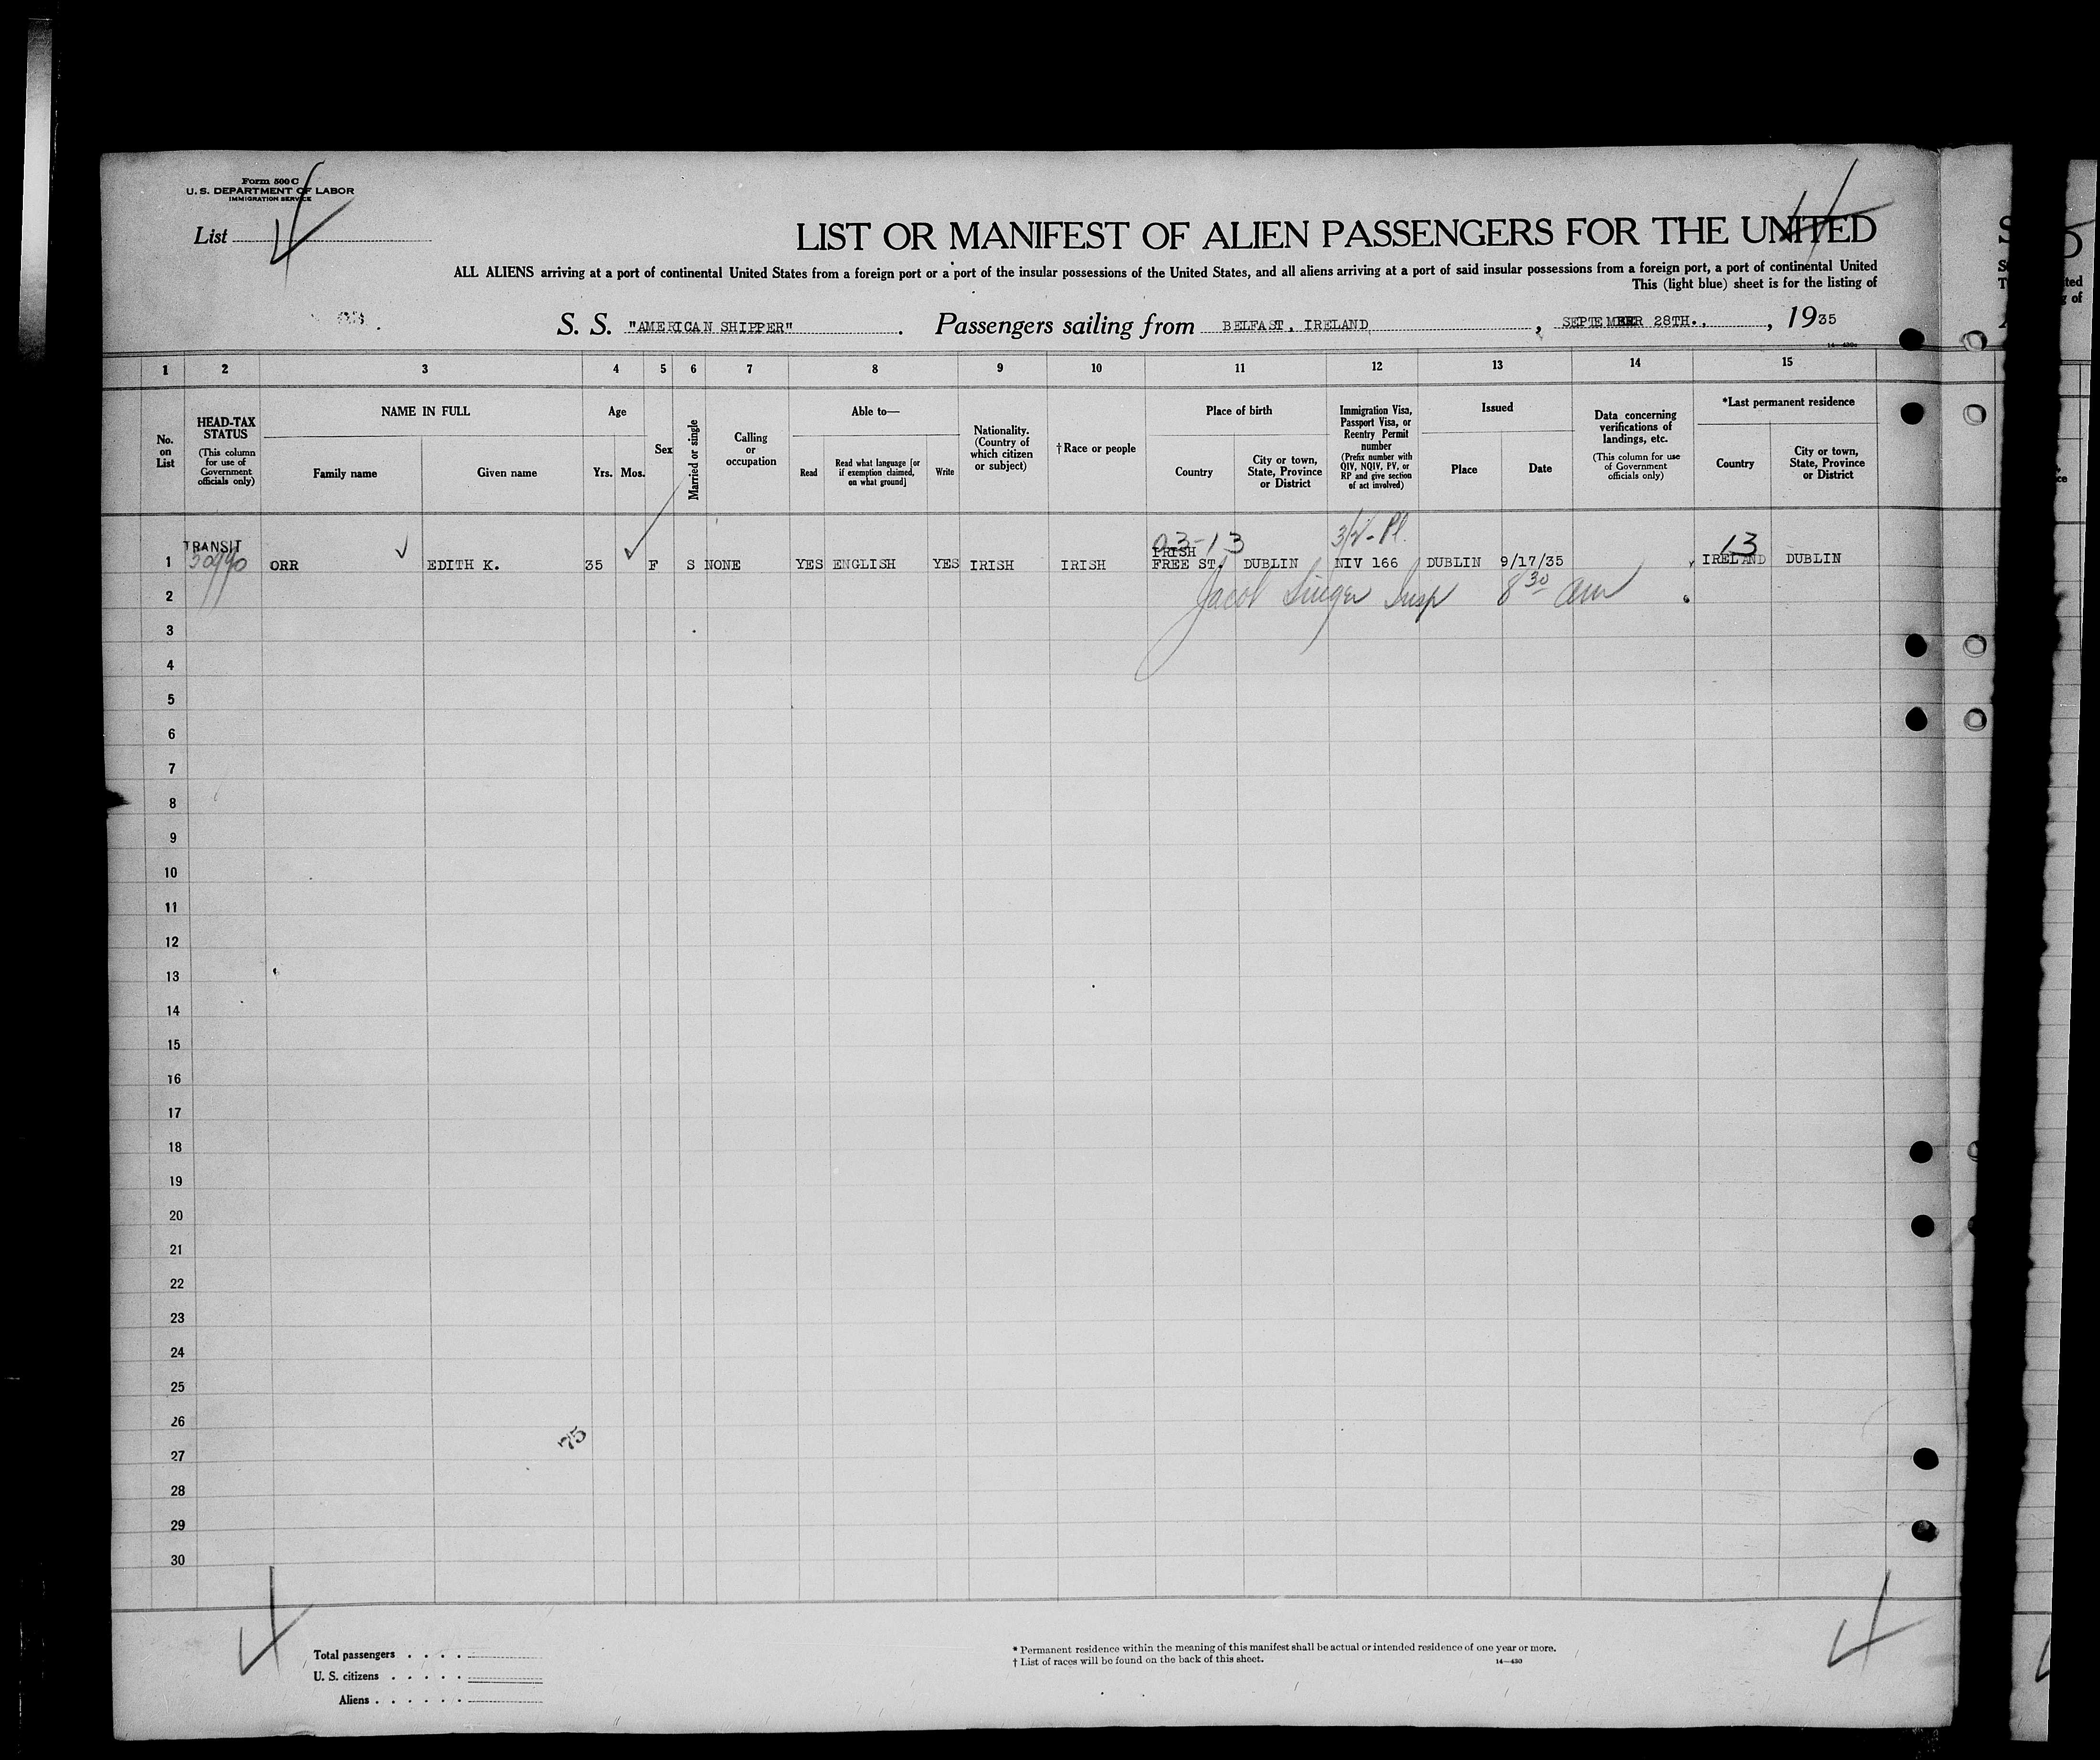 Form 500 C
U. S. DEPARTMENT OF LABOR
IMMIGRATION SERVICE
List 4
4
LIST OR MANIFEST OF ALIEN PASSENGERS FOR THE UNITED
ALL ALIENS arriving at a port of continental United States from a foreign port or a port of the insular possessions of the United States, and all aliens arriving at a port of said insular possessions from a foreign port, a port of continental United
This (light blue) sheet is for the listing of
S. S. "AMERICAN SHIPPER". Passengers sailing from BELFAST, IRELAND, SEPTEMBER 28TH., 1935
1 2 3 4 5 6 7 8 9 10 11 12 13 14 15
No. on List
HEAD-TAX STATUS
(This column for use of Government officials only)
NAME IN FULL
Family name
Given name
Age
Yrs. Mos.
Sex
Married or single
Calling or occupation
Able to—
Read
Read what language [or if exemption claimed, on what ground]
Write
Nationality. (Country of which citizen or subject)
† Race or people
Place of birth
Country
City or town, State, Province or District
Immigration Visa, Passport Visa, or Reentry Permit number
(Prefix number with QIV, NQIV, PV, or RP and give section of act involved)
Issued
Place
Date
Data concerning verifications of landings, etc.
(This column for use of Government officials only)
*Last permanent residence
Country
City or town, State, Province or District
TRANSIT
03-13
13
1 ORR EDITH K. 35 F S NONE YES ENGLISH YES IRISH IRISH IRISH FREE ST. DUBLIN NIV 166 DUBLIN 9/17/35 IRELAND DUBLIN
2 Jacob Singer Insp 8 30 am
3
4
5
6
7
8
9
10
11
12
13
14
15
16
17
18
19
20
21
22
23
24
25
26
75
27
28
29
30
4
4
Total passengers . . . .
U. S. citizens . . . . .
Aliens . . . . . .
* Permanent residence within the meaning of this manifest shall be actual or intended residence of one year or more.
† List of races will be found on the back of this sheet.
14—430